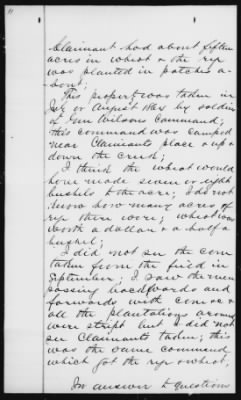 11
Claimant had about fifteen
acres in wheat & the rye
was planted in patches a-
bout;
This property was taken in
July or August 1864 by soldiers
of Genl Wilsons Command;
this command was camped
near Claimants place & up &
down the creek;
I think the wheat would
have made seven or eight
bushels to the acre; I do not
know how many acres of
rye there were; wheat was
worth a dollar & a half a
bushel;
I did not see the corn
taken from the field in
September; I saw the men
passing backwards and
forwards with corn &
all the plantations around
were stript but I did not
see Claimants taken; this
was the same command
which got the rye & wheat;
In answer to questions